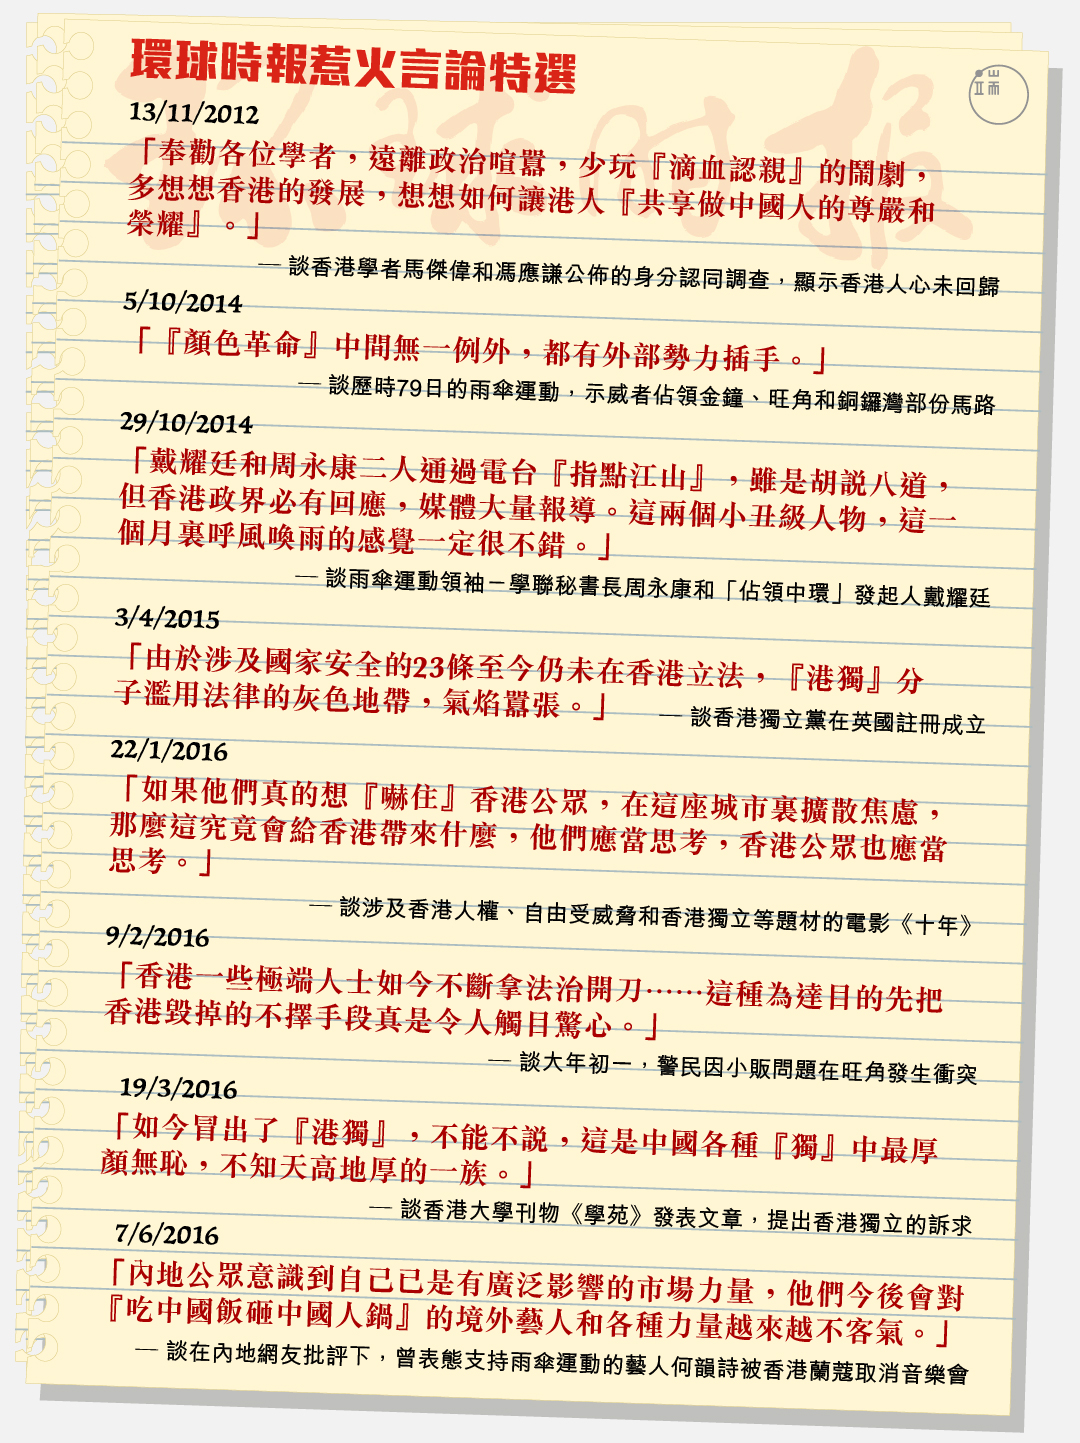 環球時報惹火言論特選
端
环球时报
13/11/2012
「奉勸各位學者，遠離政治喧囂，少玩『滴血認親』的鬧劇，
多想想香港的發展，想想如何讓港人『共享做中國人的尊嚴和
榮耀』。」
— 談香港學者馬傑偉和馮應謙公佈的身分認同調查，顯示香港人心未回歸
5/10/2014
「『顏色革命』中間無一例外，都有外部勢力插手。」
— 談歷時79日的雨傘運動，示威者佔領金鐘、旺角和銅鑼灣部份馬路
29/10/2014
「戴耀廷和周永康二人通過電台『指點江山』，雖是胡説八道，
但香港政界必有回應，媒體大量報導。這兩個小丑級人物，這一
個月裏呼風喚雨的感覺一定很不錯。」
— 談雨傘運動領袖－學聯秘書長周永康和「佔領中環」發起人戴耀廷
3/4/2015
「由於涉及國家安全的23條至今仍未在香港立法，『港獨』分
子濫用法律的灰色地帶，氣焰囂張。」
— 談香港獨立黨在英國註冊成立
22/1/2016
「如果他們真的想『嚇住』香港公眾，在這座城市裏擴散焦慮，
那麼這究竟會給香港帶來什麼，他們應當思考，香港公眾也應當
思考。」
— 談涉及香港人權、自由受威脅和香港獨立等題材的電影《十年》
9/2/2016
「香港一些極端人士如今不斷拿法治開刀……這種為達目的先把
香港毀掉的不擇手段真是令人觸目驚心。」
— 談大年初一，警民因小販問題在旺角發生衝突
19/3/2016
「如今冒出了『港獨』，不能不説，這是中國各種『獨』中最厚
顏無恥，不知天高地厚的一族。」
— 談香港大學刊物《學苑》發表文章，提出香港獨立的訴求
7/6/2016
「內地公眾意識到自己已是有廣泛影響的市場力量，他們今後會對
『吃中國飯砸中國人鍋』的境外藝人和各種力量越來越不客氣。」
— 談在內地網友批評下，曾表態支持雨傘運動的藝人何韻詩被香港蘭蔻取消音樂會